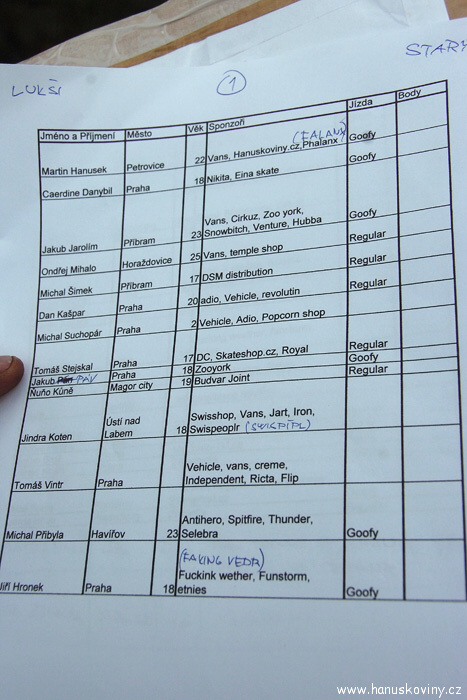 LUKŠI
1
STARY
Jméno a Příjmení Město Věk Sponzoři Jízda Body
Martin Hanusek Petrovice 22 Vans, Hanuskoviny.cz, Phalanx (FALANX) Goofy
Caerdine Danybil Praha 18 Nikita, Eina skate Goofy
Jakub Jarolím Příbram 23 Vans, Cirkuz, Zoo york,
Snowbitch, Venture, Hubba Goofy
Ondřej Mihalo Horaždovice 25 Vans, temple shop Regular
Michal Šimek Příbram 17 DSM distribution Regular
Dan Kašpar Praha 20 adio, Vehicle, revolutin Regular
Michal Suchopár Praha 2 Vehicle, Adio, Popcorn shop
Tomáš Stejskal Praha 17 DC, Skateshop.cz, Royal Regular
Jakub PÁV Praha 18 Zooyork Goofy
Nuňo Kůně Magor city 19 Budvar Joint Regular
Jindra Koten Ústí nad
Labem 18 Swisshop, Vans, Jart, Iron,
Swispeoplr (SWISPÍPL)
Tomáš Vintr Praha Vehicle, vans, creme,
Independent, Ricta, Flip
Michal Přibyla Havířov 23 Antihero, Spitfire, Thunder,
Selebra Goofy
(FAKING VEDR)
Jiří Hronek Praha 18 Fuckink wether, Funstorm,
etnies Goofy
www.hanuskoviny.cz